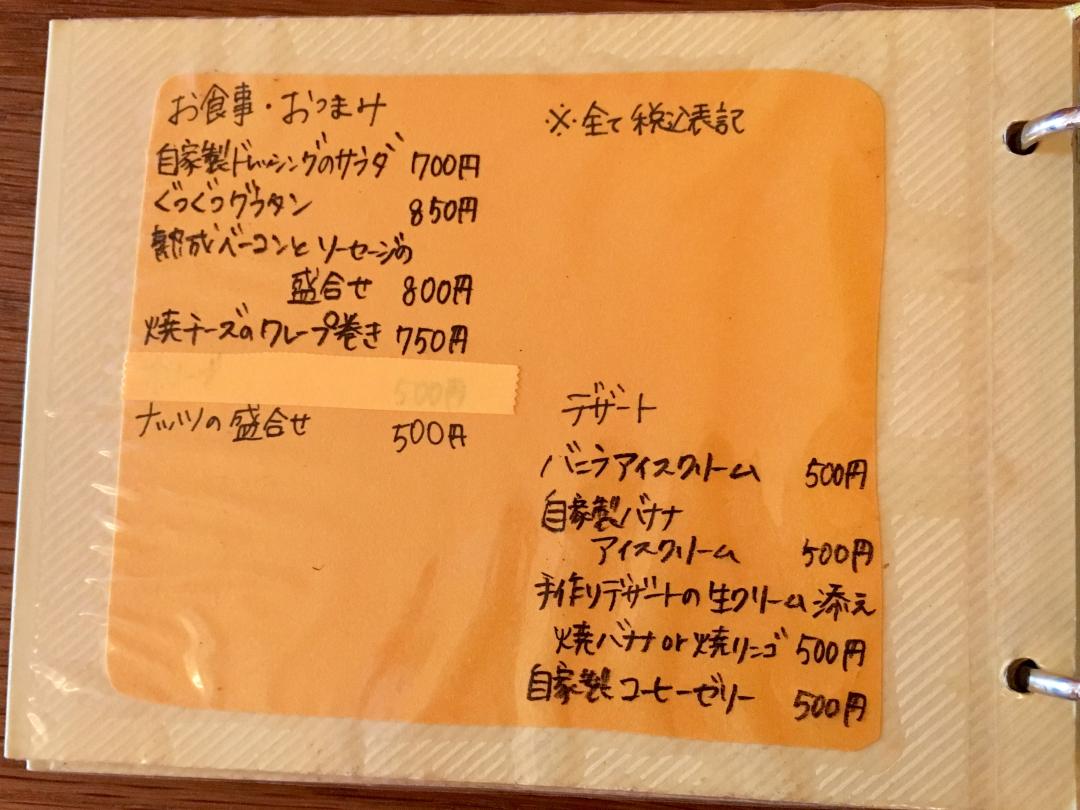 お食事・おつまみ
自家製ドレッシングのサラダ 700円
ぐつぐつグラタン 850円
熟成ベーコンとソーセージの
盛合せ 800円
焼チーズのクレープ巻き 750円
500円
ナッツの盛合せ 500円
※全て税込表記
デザート
バニラアイスクリーム 500円
自家製バナナ
アイスクリーム 500円
手作りデザートの生クリーム添え
焼バナナor焼リンゴ 500円
自家製コーヒーゼリー 500円